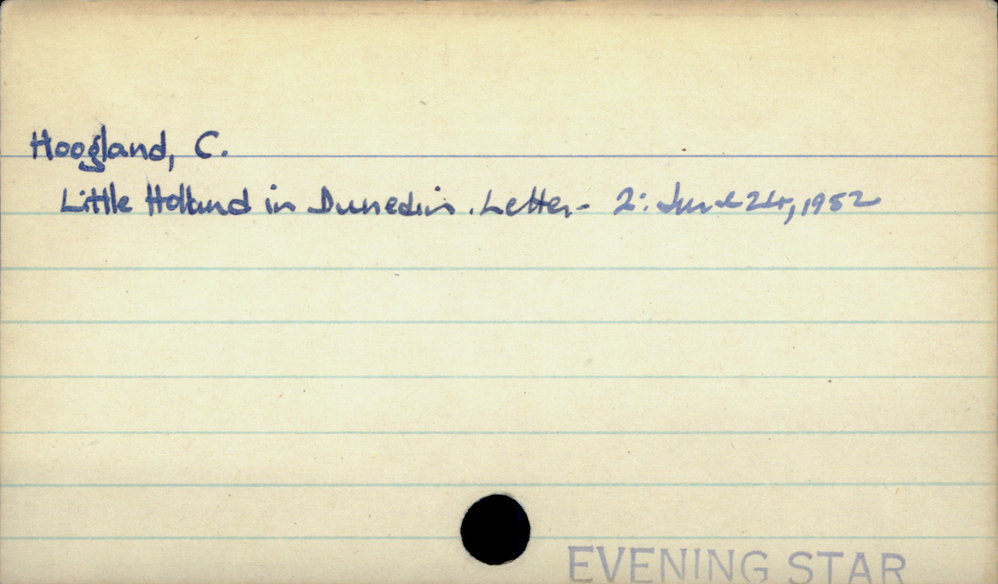 Hoogland, C.
Little Holland in Dunedin. Letter - 2: June 24, 1952
EVENING STAR